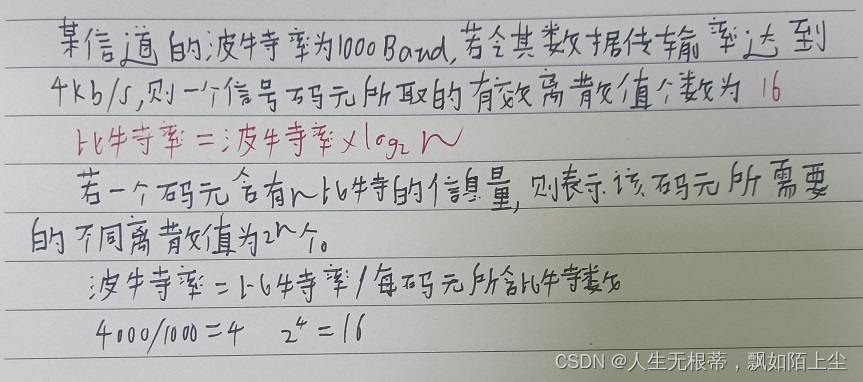 某信道的波特率为1000Baud,若令其数据传输率达到
4kb/s,则一个信号码元所取的有效离散值个数为 16
比特率=波特率×log₂n
若一个码元含有n比特的信息量,则表示该码元所需要
的不同离散值为2n个。
波特率=比特率/每码元所含比特数
4000/1000=4 2⁴=16
CSDN @人生无根蒂，飘如陌上尘